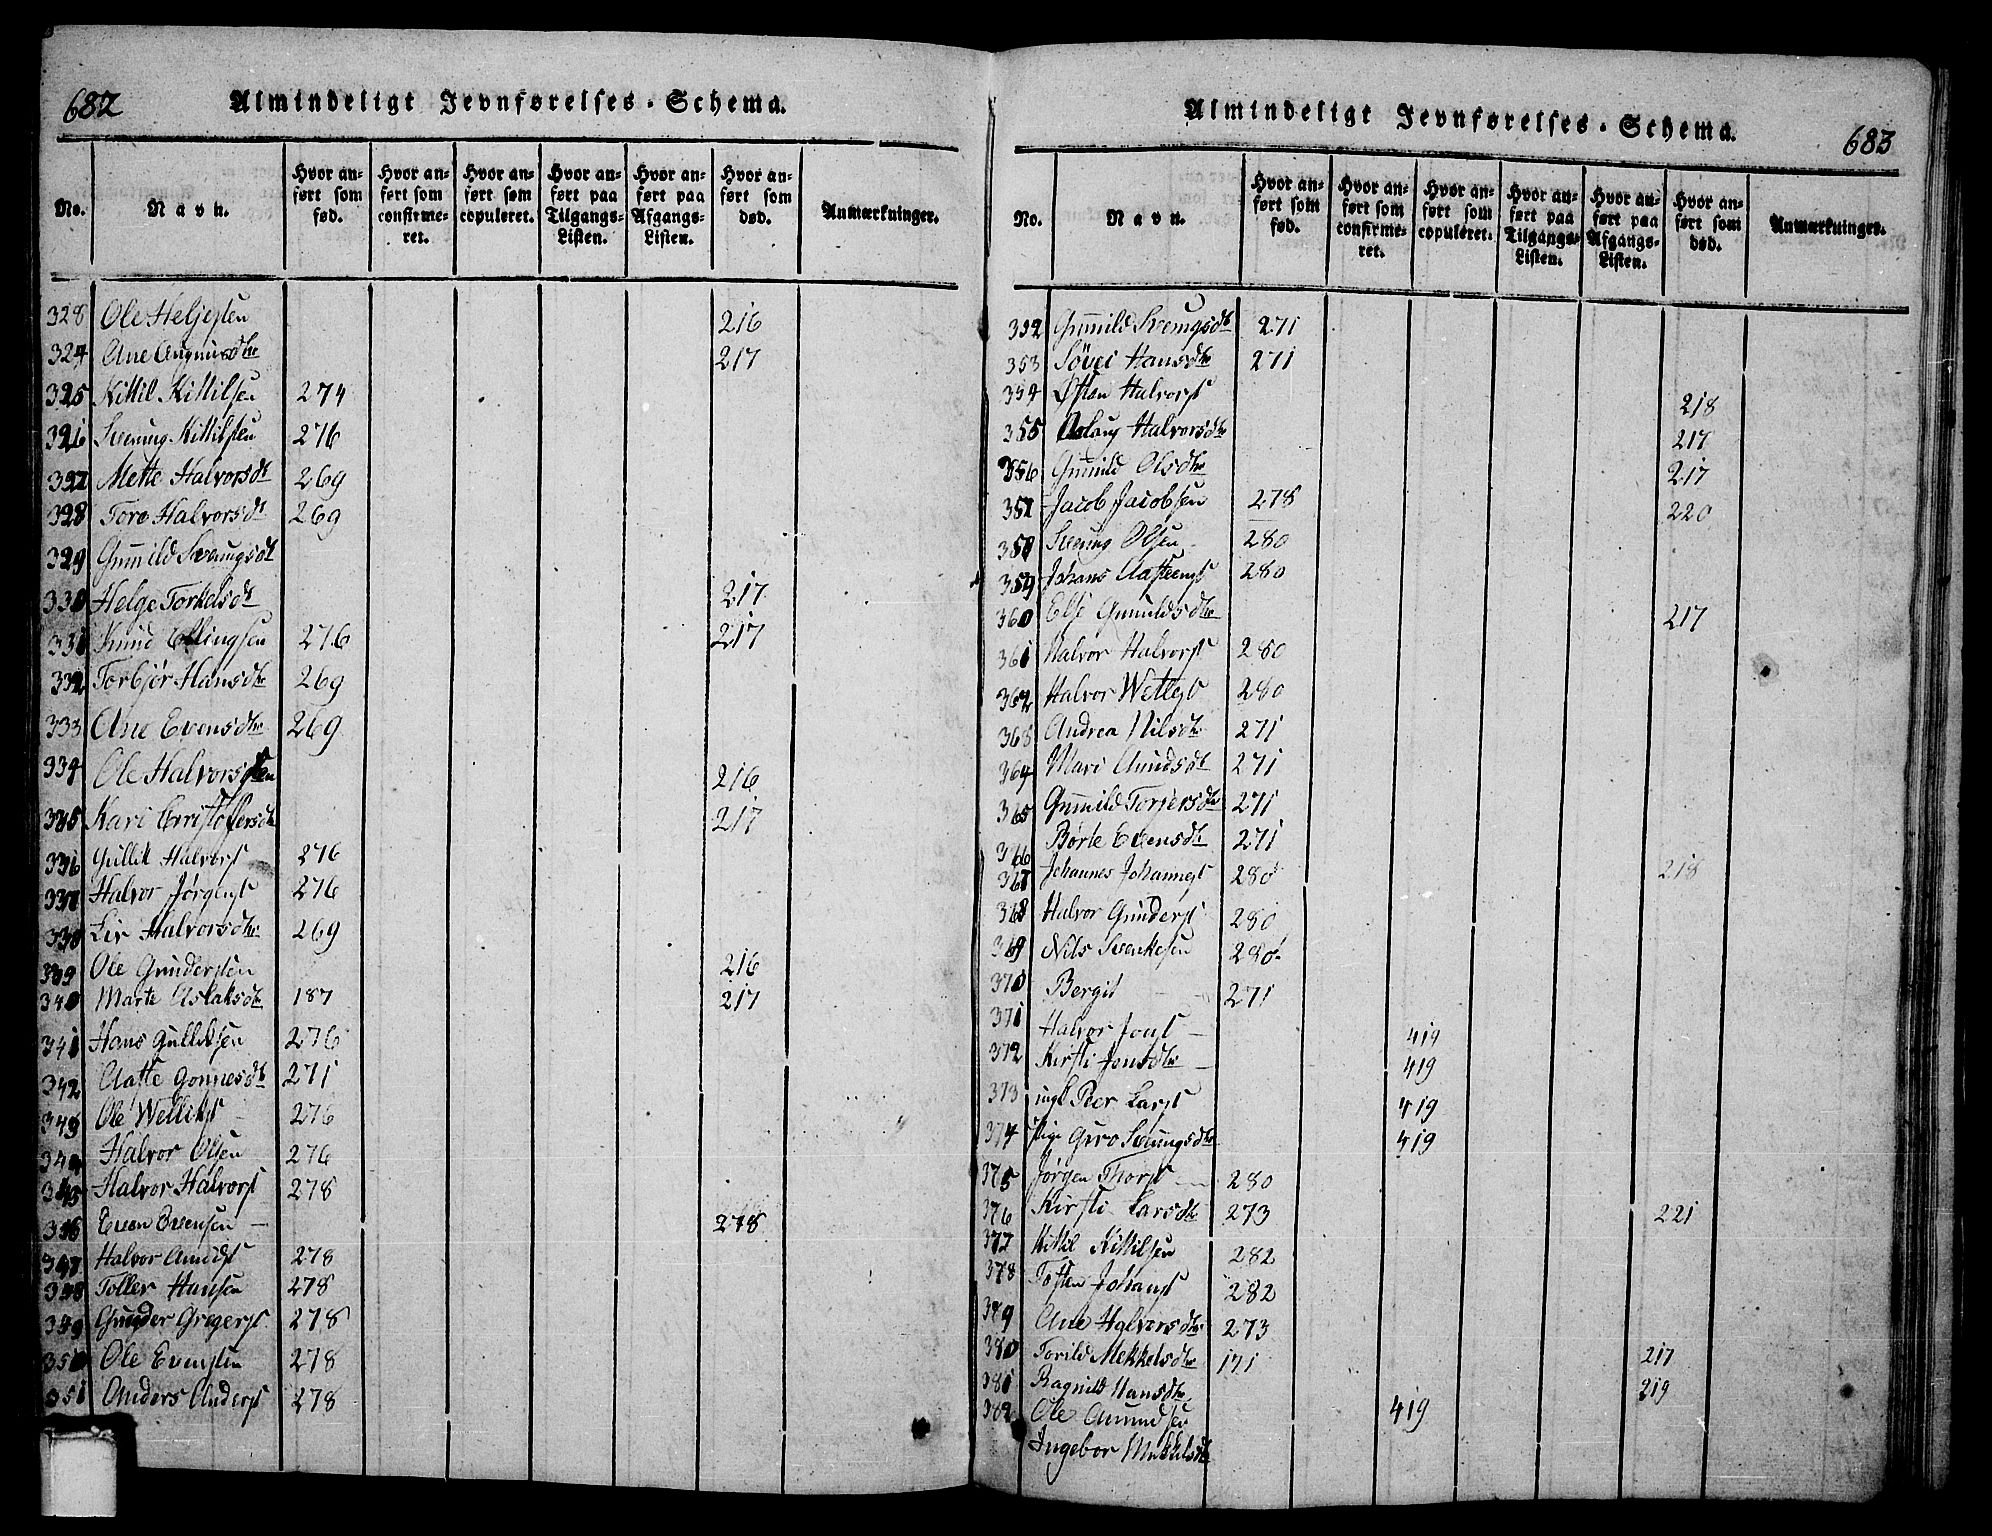 682
Almindeligt Jevnførelses-Schema.
No. Navn. Hvor anført som fød. Hvor anført som confirmeret. Hvor anført som copuleret. Hvor anført paa Tilgangs-Listen. Hvor anført paa Afgangs-Listen. Hvor anført som død. Anmærkninger.
328 Ole Heljesten 216
324 Ane Augunsdtr 217
325 Kittil Kittilsen 274
326 Sveinung Kittilsen 276
327 Mette Halvorsdt 269
328 Tore Halvorsdt 269
329 Gunnild Sveungsdt
330 Helge Torkelsdt 217
331 Knud Ellingsen 276 217
332 Torbjør Hansdtr 269
333 Ane Evensdtr 269
334 Ole Halvorssen 216
335 Kari Christoffersdtr 217
336 Gullik Halvors 276
337 Halvor Jørgens 276
338 Liv Halvorsdtr 269
339 Ole Gundersten 216
340 Marte Aslaksdtr 187 217
341 Hans Gulliksen 276
342 Aaste Gonnesdt 271
343 Ole Welliks 276
344 Halvor Olsen 276
345 Halvor Halvors 278
346 Even Evensen 278
347 Halvor Amunds 278
348 Toller Hansen 278
349 Gunder Gregers 278
350 Ole Evensten 278
351 Anders Anders 278
Almindeligt Jevnførelses-Schema.
683
No. Navn. Hvor anført som fød. Hvor anført som confirmeret. Hvor anført som copuleret. Hvor anført paa Tilgangs-Listen. Hvor anført paa Afgangs-Listen. Hvor anført som død. Anmærkninger.
352 Gunnild Sveungsdt 271
353 Søvei Hansdtr 271
354 Østen Halvors 218
355 Aslaug Halvorsdtr 217
356 Gunnild Olsdtr 217
357 Jacob Jacobsen 278 220
358 Sveinung Olsen 280
359 Johans 280
360 Else Gunuldsdtr 217
361 Halvor Halvors 280
362 Halvor Wetles 280
363 Andrea Nilsdtr 271
364 Mari Amundsdt 271
365 Gunnild Torjersdtr 271
366 Børte Evensdtr 271
367 Johannes Johannes 280 218
368 Halvor Gunders 280
369 Nils Svenkesen 280
370 Bergit 271
371 Halvor Jons 419
372 Kirsti Jonsdtr 419
373 ungk Peer Lars 419
374 Pige Guro Sveinungsdtr 419
375 Jørgen Thors 280
376 Kirsti Larsdtr 273 221
377 Kittil Kittilsen 282
378 Tosten Johans 282
379 Ane Halvorsdtr 273
380 Torild Mekkelsdtr 171 217
381 Ragnild Hansdtr 219
382 Ole Amundsen 419
Ingebor Mekkelsdtr